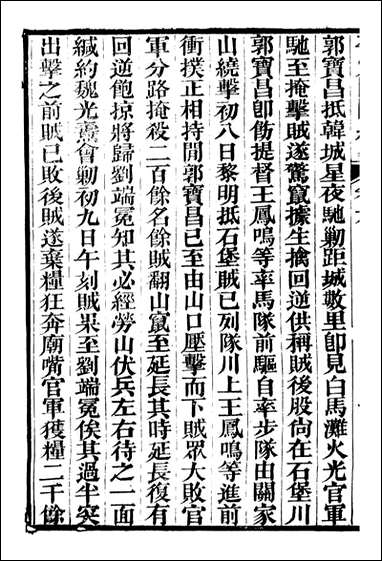 郭寶昌抵韓城星夜馳勦距城數里卽見白馬灘火光官軍
馳至掩擊賊遂驚竄據生擒回逆供稱賊後股尙在石堡川
郭寶昌卽飭提督王鳳鳴等率馬隊前驅自率步隊由關家
山繞擊初八日黎明抵石堡賊已列隊川上王鳳鳴等進前
衝撲正相持間郭寶昌已至由山口壓擊而下賊眾大敗官
軍分路掩殺二百餘名餘賊翻山竄至延長其時延長復有
回逆飽掠將歸劉端冕知其必經勞山伏兵左右待之一面
緘約魏光燾會勦初九日午刻賊果至劉端冕俟其過半突
出擊之前賊已敗後賊遂棄糧狂奔廟嘴官軍獲糧二千餘